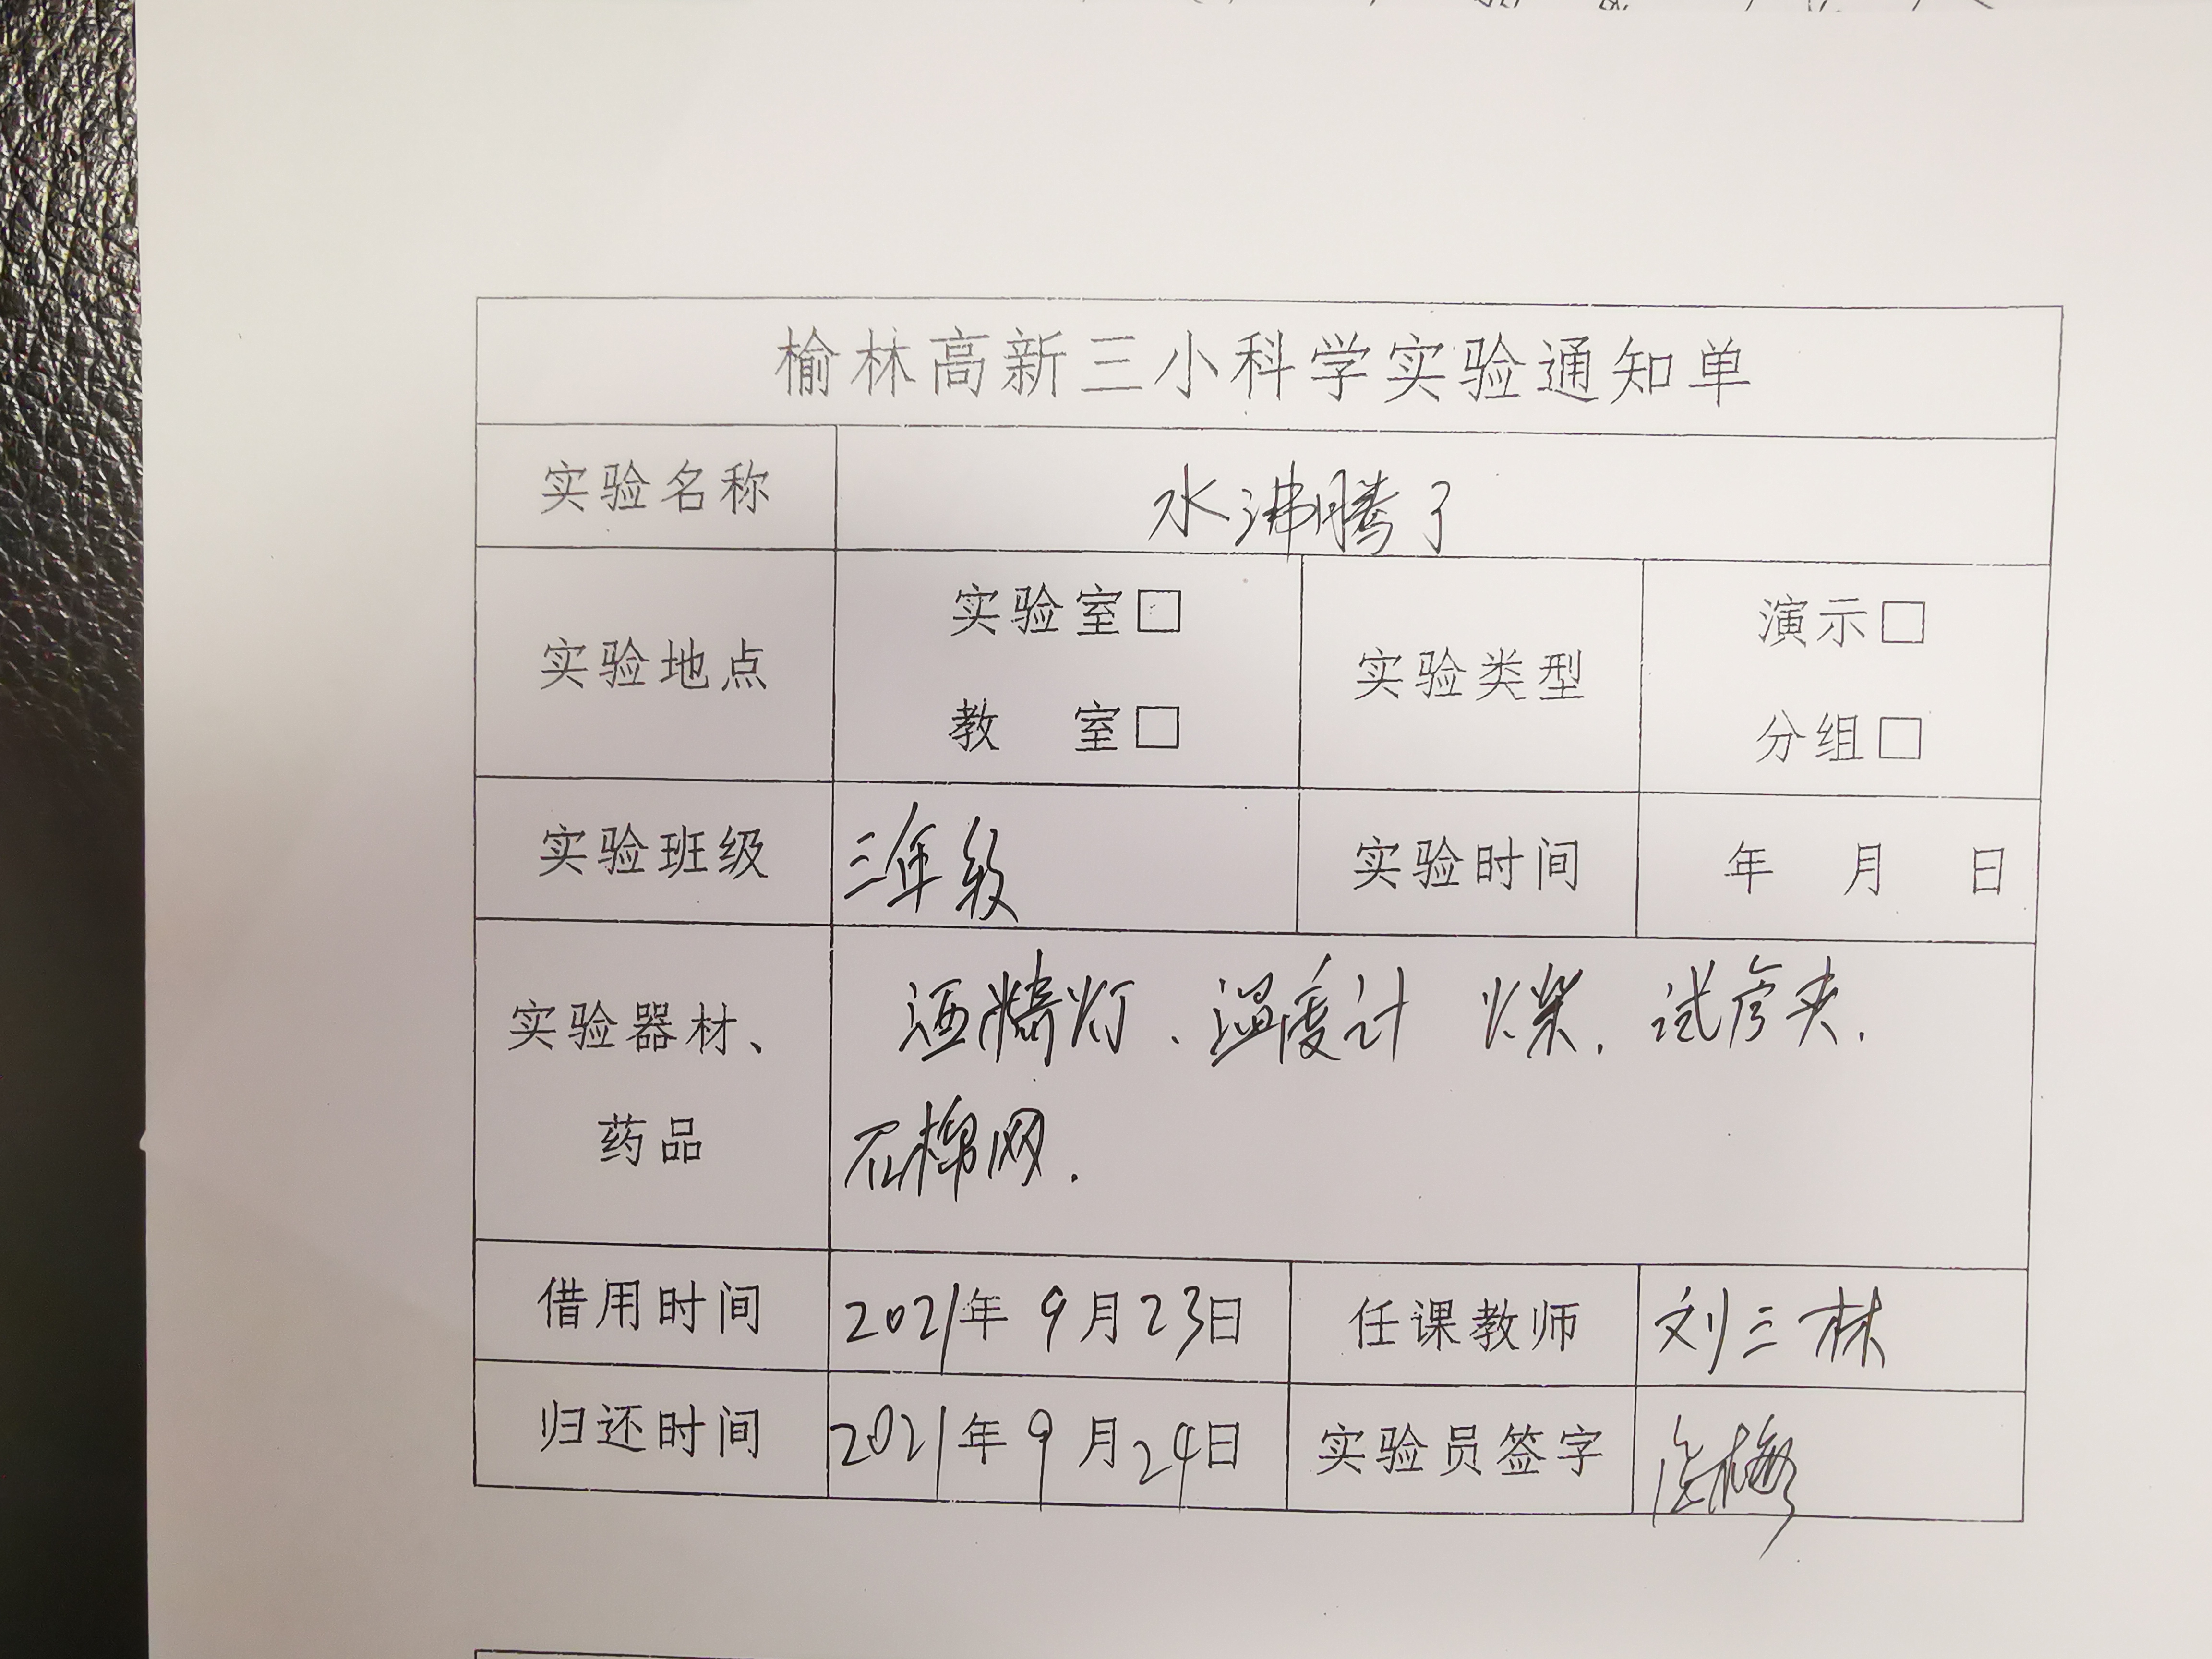 榆林高新三小科学实验通知单
实验名称 水沸腾了
实验地点 实验室□ 教 室□ 实验类型 演示□ 分组□
实验班级 三年级 实验时间 年 月 日
实验器材、药品 酒精灯、温度计 火柴.试管夹.
石棉网.
借用时间 2021年9月23日 任课教师 刘三林
归还时间 2021年9月24日 实验员签字